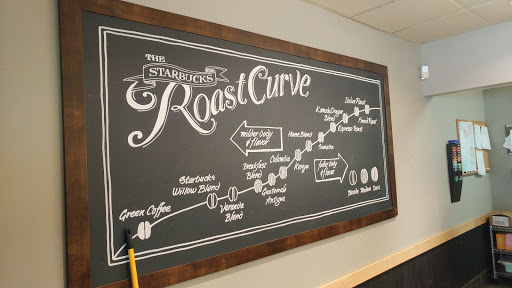 THE
STARBUCKS
Roast Curve
Italian Roast
Komodo Dragon
Blend
French Roast
Espresso Roast
milder body
& flavor
Home Blend
Sumatra
Colombia
Kenya
fuller body
& flavor
Breakfast
Blend
Guatemala
Antigua
Starbucks
Willow Blend
Veranda
Blend
Blonde Medium Dark
Green Coffee